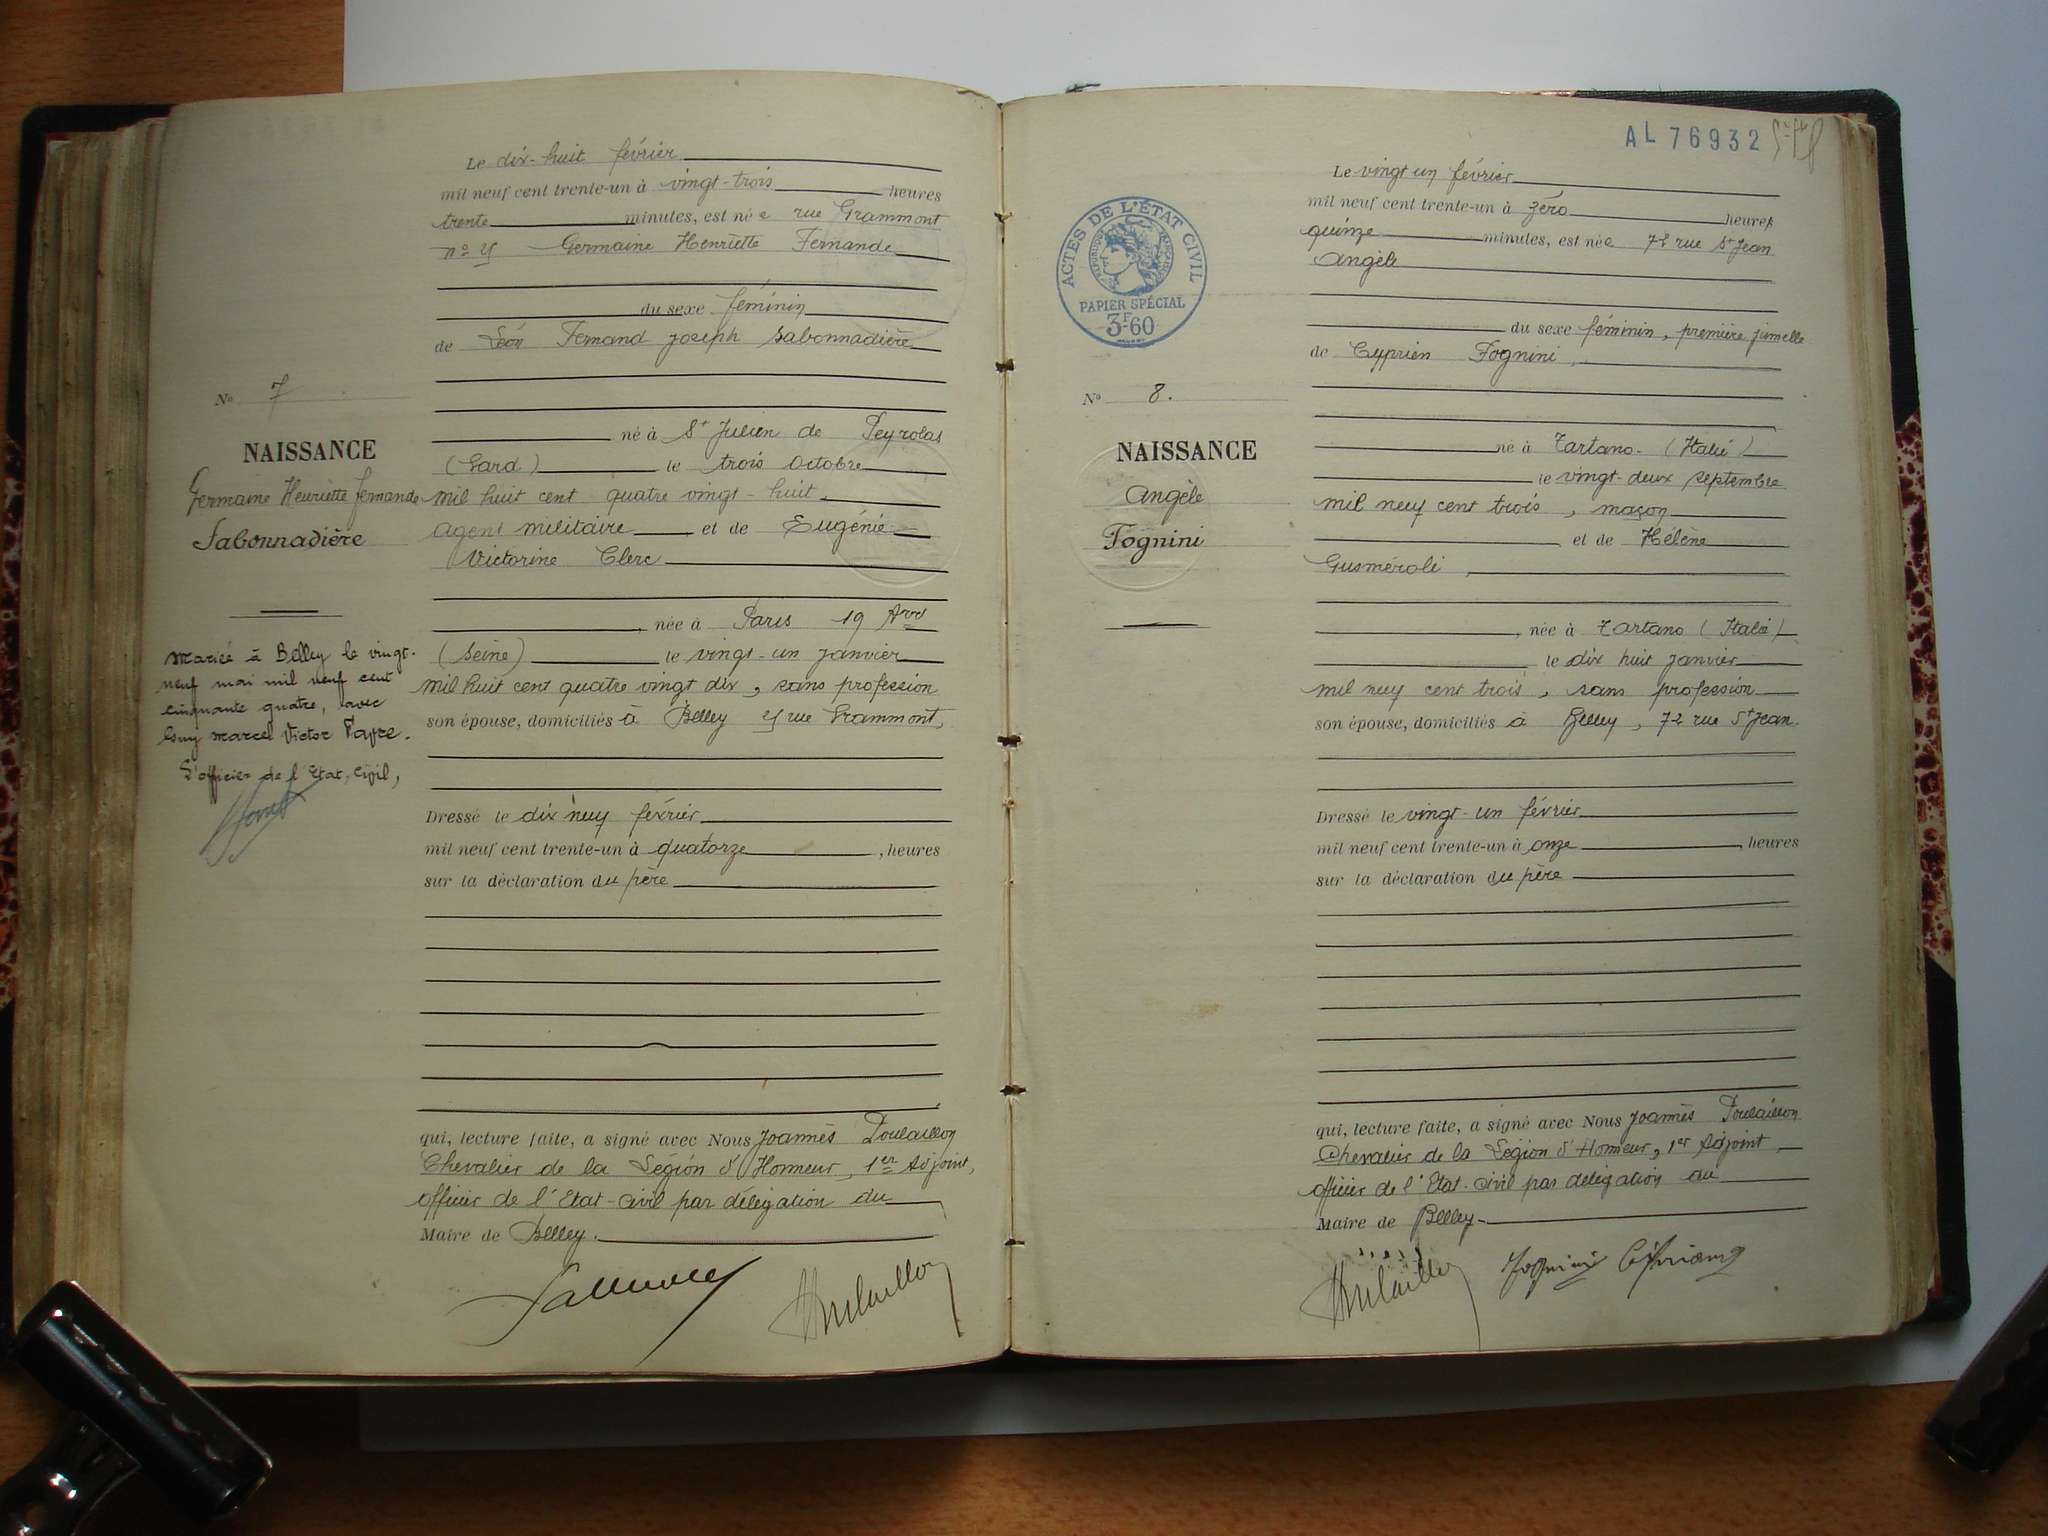 Le dix-huit février
mil neuf cent trente-un à vingt-trois heures
trente minutes, est née rue Grammont
Germaine Henriette Fernande
du sexe féminin
de Léon Fernand Joseph Sabonnadière
né à St Julien de Peyrolas
(Gard) le trois Octobre
mil huit cent quatre vingt-huit,
agent militaire et de Eugénie
Victorine Clerc
, née à Paris 19 Arrt
(Seine) le vingt-un janvier
mil huit cent quatre vingt dix, sans profession
son épouse, domiciliés à Belley rue Grammont,
Dressé le dix neuf février
mil neuf cent trente-un à quatorze, heures
sur la déclaration du père
qui, lecture faite, a signé avec Nous Joannès Poulaillon
Chevalier de la Légion d'Honneur, 1er Adjoint,
officier de l'Etat-civil par délégation du
Maire de Belley.
No 7
NAISSANCE
Germaine Henriette Fernande
Sabonnadière
Mariée à Belley le vingt-
neuf mai mil neuf cent
cinquante quatre, avec
Marcel Victor Favre.
L'officier de l'Etat-Civil,
AL 76932
ACTES DE L'ÉTAT CIVIL
RÉPUBLIQUE FRANÇAISE
PAPIER SPÉCIAL
3F60
No 8.
NAISSANCE
Angèle
Fognini
Le vingt un février
mil neuf cent trente-un à zéro heures
quinze minutes, est née 72 rue St Jean
Angèle
du sexe féminin, première jumelle
de Cyprien Fognini,
né à Tartano (Italie)
le vingt-deux septembre
mil neuf cent trois, maçon
et de Hélène
Gusméroli,
, née à Tartano (Italie)
le dix huit janvier
mil neuf cent trois, sans profession
son épouse, domiciliés à Belley, 72 rue St Jean.
Dressé le vingt-un février
mil neuf cent trente-un à onze, heures
sur la déclaration du père
qui, lecture faite, a signé avec Nous Joannès Poulaillon
Chevalier de la Légion d'Honneur, 1er Adjoint,
officier de l'Etat-civil par délégation du
Maire de Belley-
Poulaillon Fognini Cipriano